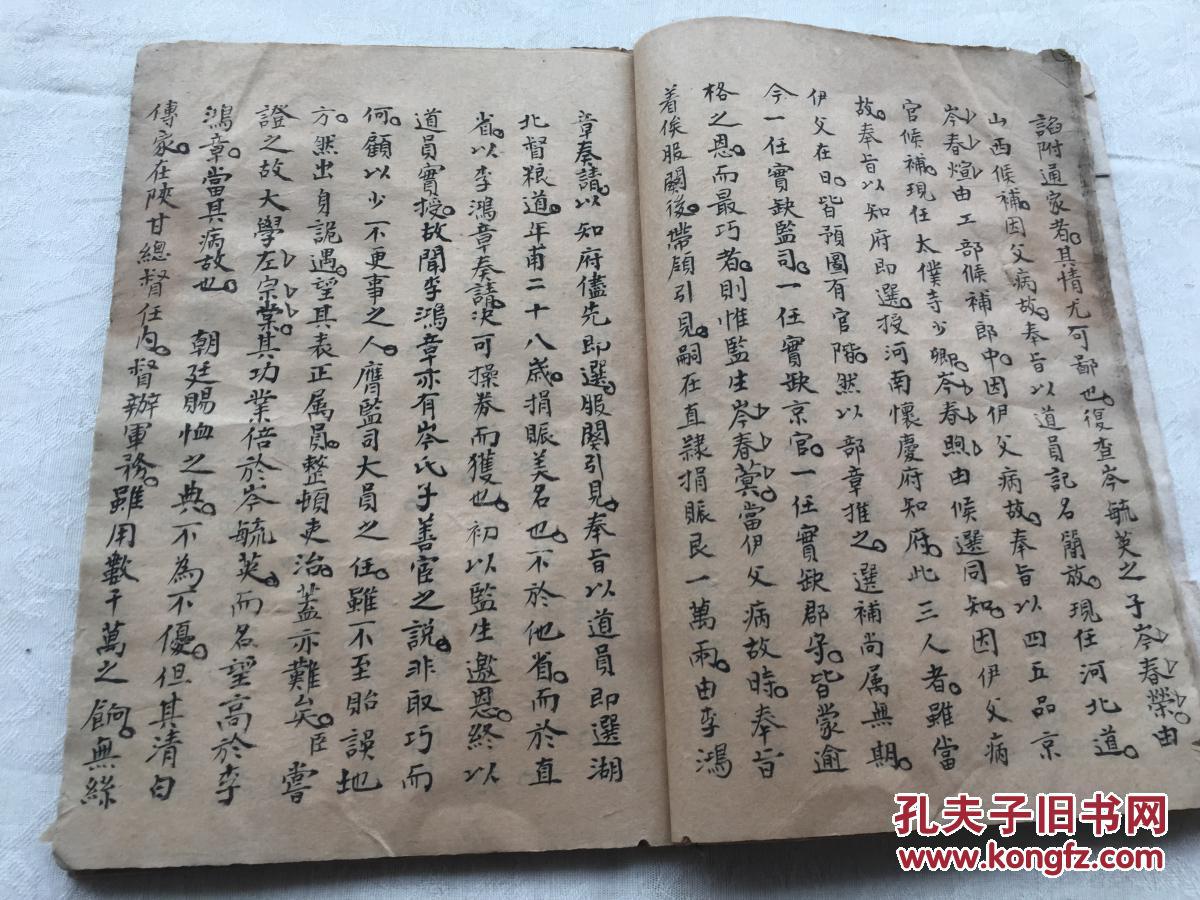 諂附通家者其情尤可鄙也復查岑毓英之子岑春榮由
山西候補因父病故奉旨以道員記名簡放現任河北道
岑春煊由工部候補郎中因伊父病故奉旨以四五品京
官候補現任太僕寺少卿岑春煦由候選同知因伊父病
故奉旨以知府即選授河南懷慶府知府此三人者雖當
伊父在日皆預圖有官階然以部章推之選補尚属無期
今一任實缺監司一任實缺京官一任實缺郡守皆蒙逾
格之恩而最巧者則惟監生岑春蓂當伊父病故時奉旨
着俟服闋後帶領引見嗣在直隸捐賑艮一萬兩由李鴻
章奏請以知府儘先即選服闋引見奉旨以道員即選湖
北督粮道年甫二十八歲捐賑美名也不於他省而於直
省以李鴻章奏請决可操券而獲也初以監生邀恩終以
道員實授故聞李鴻章亦有岑氏子善宦之説非取巧而
何顧以少不更事之人膺監司大員之任雖不至貽誤地
方然出身詭遇望其表正属員整頓吏治葢亦難矣臣嘗
證之故大學左宗棠其功業倍於岑毓英而名望高於李
鴻章當其病故也 朝廷賜恤之典不為不優但其清白
傳家在陝甘總督任内督辦軍務雖用數千萬之餉無絲
孔夫子旧书网
www.kongfz.com